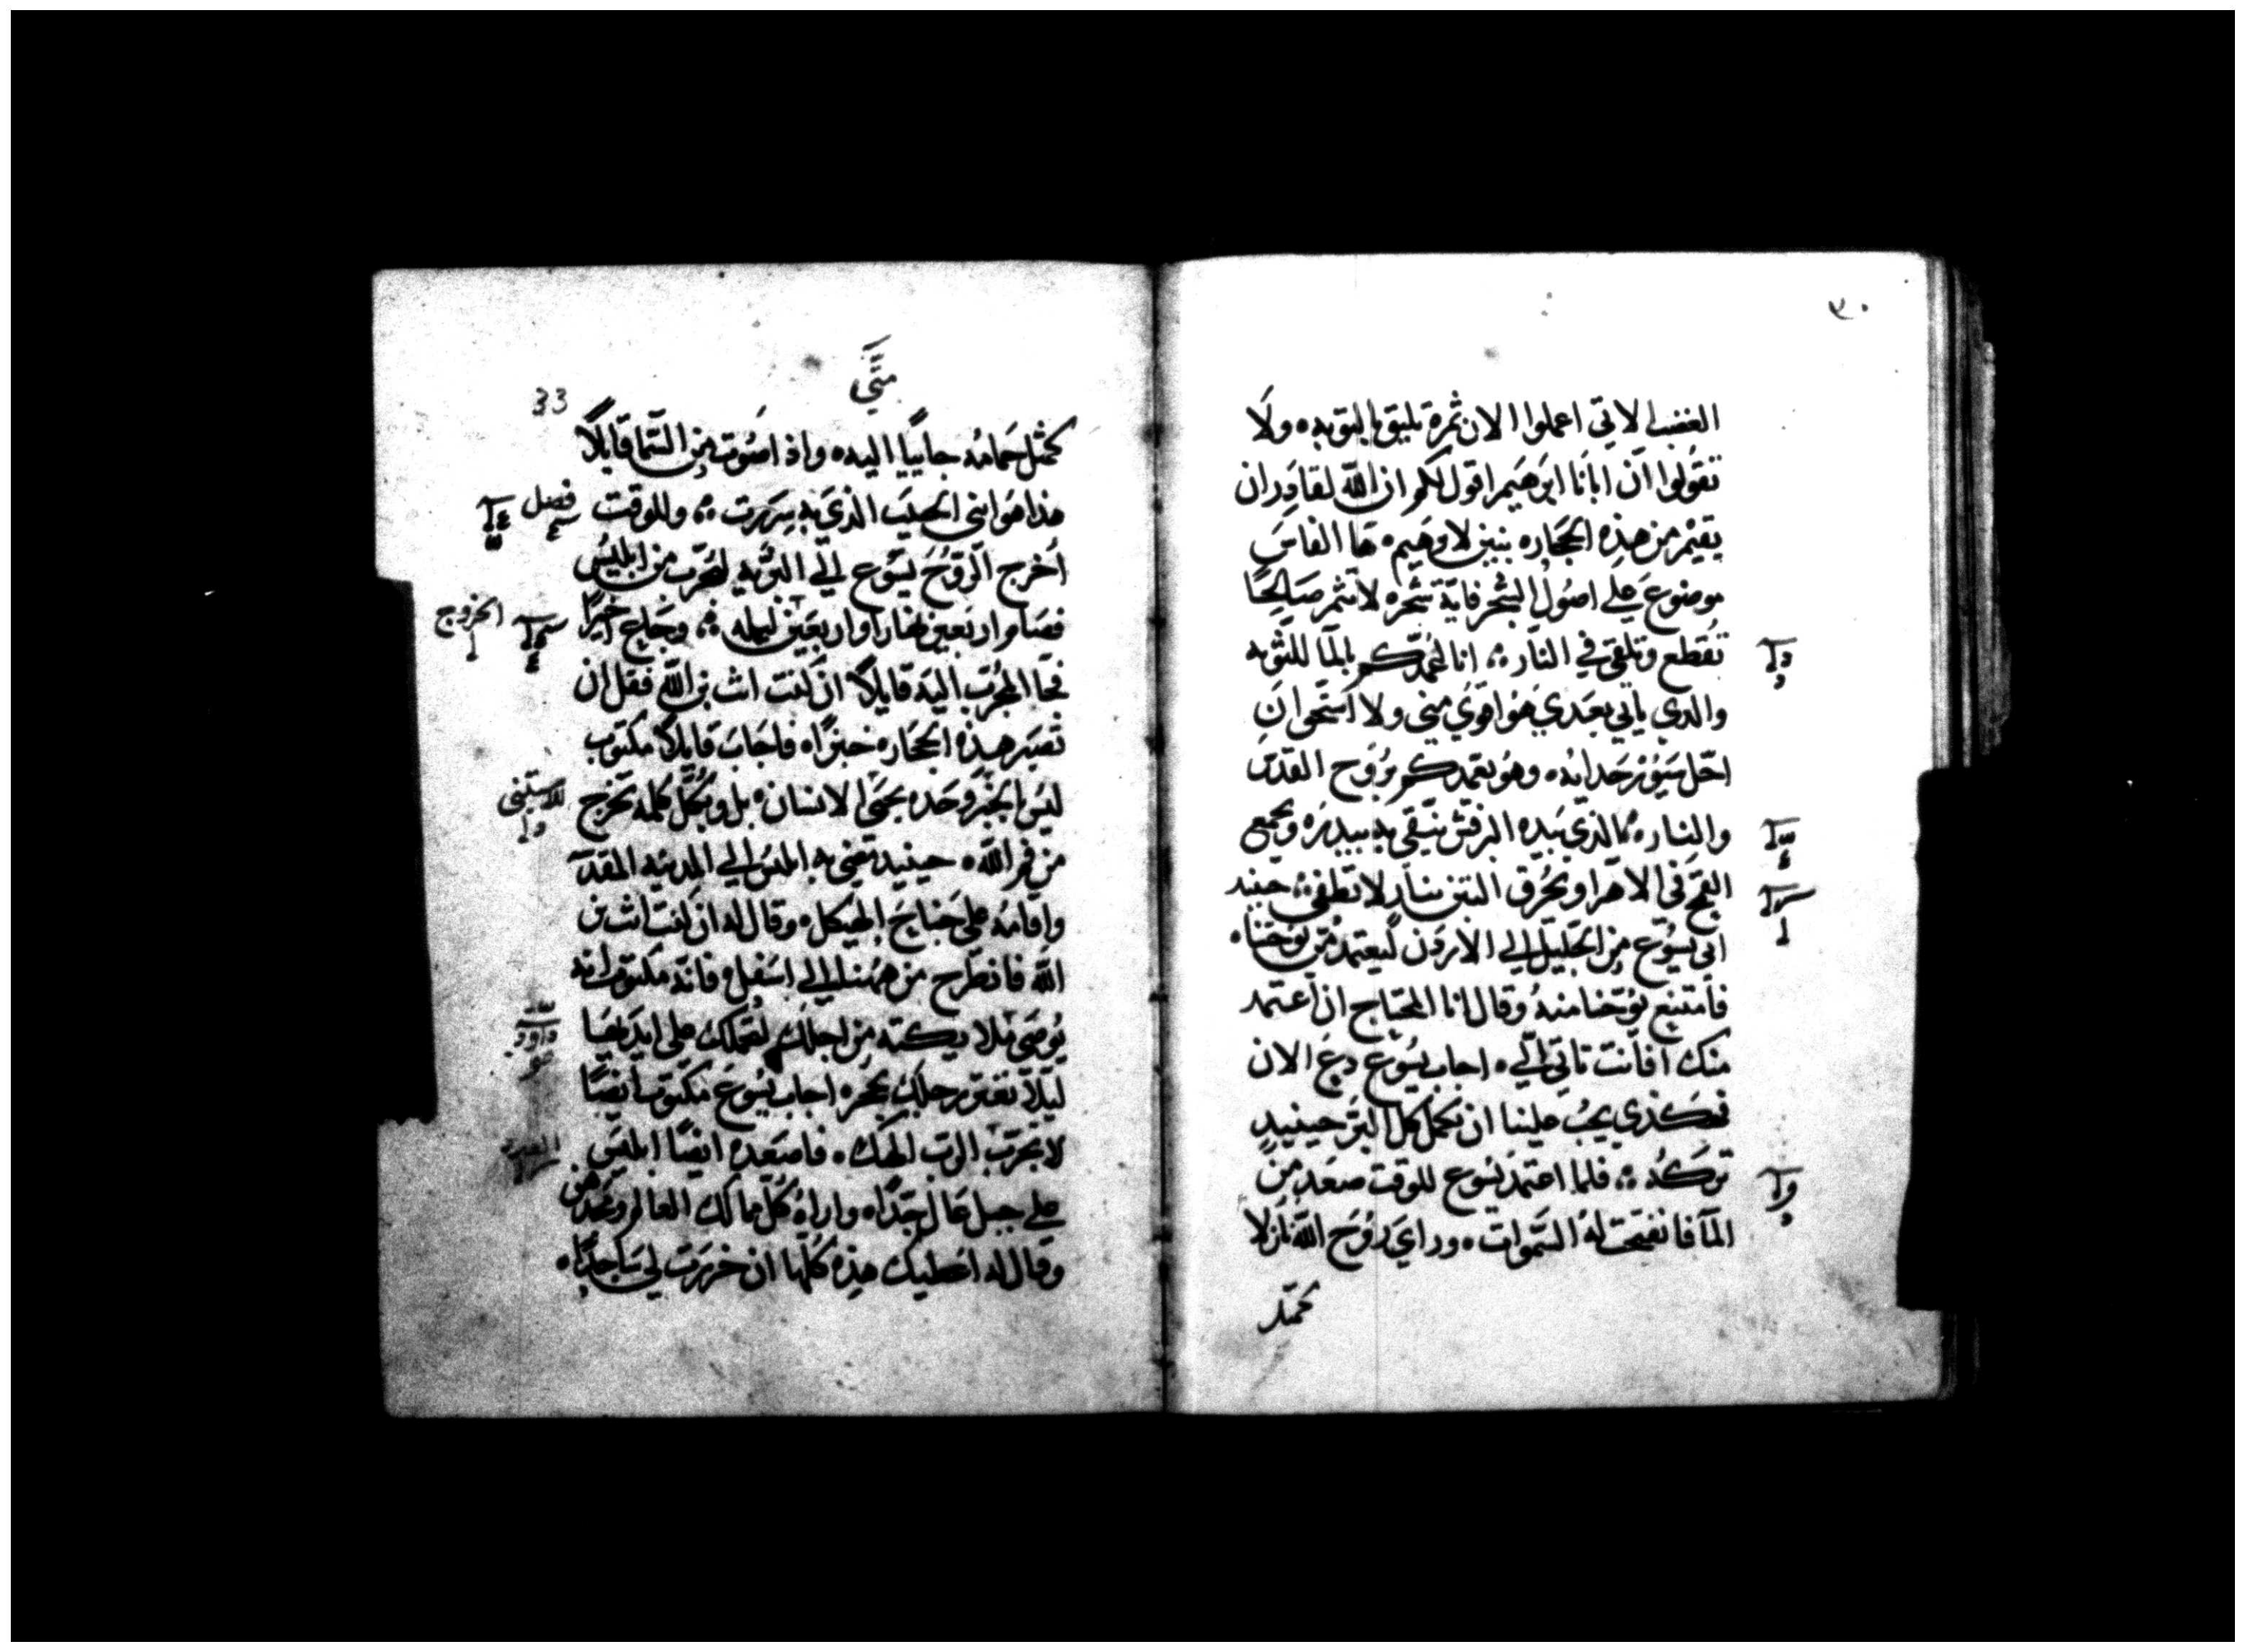 الغضب الاتي اعملوا الان ثمرة تليق بالتوبه ولا
تقولوا ان ابانا ابرهيم اقول لكم ان الله لقادر ان
يقيم من هذه الحجاره بنين لاوهيم ها الفاس
موضوع على اصول الشجر فاية شجره لا تثمر صالحا
تقطع وتلقى في النار انا اعمدكم بالما للتوبه
والدي ياتي بعدي هو اقوي مني ولا استحق ان
احل سيور حدايه وهو يعمدكم بروح القدس
والنار الذي بيده الرفش ينقي به بيدره ويجمع
القمح في الاهرا ويحرق التبن بنار لا تطفى حينيد
اتى يسوع من الجليل الي الاردن ليعتمد من يوحنا
فامتنع يوحنا منه وقال انا المحتاج ان اعتمد
منك افانت تاتي الي اجاب يسوع دع الان
فهكذي يجب علينا ان نكمل كل البر حينيد
تركه فلما اعتمد يسوع للوقت صعد من
الما فانفتحت له السموات وراي روح الله نازلا
كمثل
متى
33
كمثل حمامه جاييا اليه واذ اصوت من السما قايلا
هذا هو ابني الحبيب الذي به سررت وللوقت
فصل
اخرج الروح يسوع الي البريه ليجرب من ابليس
فصام اربعين نهارا واربعين ليله وجاع اخيرا
الخروج
فجا المجرب اليه قايلا ان كنت انت بن الله فقل ان
تصير هذه الحجاره خبزا فاجاب قايلا مكتوب
ليس بالخبز وحده يحيى الانسان بل وبكل كلمه تخرج
من فم الله حينيد مضى به ابليس الي المدينه المقدسه
واقامه على جناح الهيكل وقال له ان كنت انت بن
الله فانطرح من ههنا الي اسفل فانه مكتوب انه
يوصي ملايكته من اجلك لتحملك على ايديها
داوود
ليلا تعتر رجلك بحجر اجاب يسوع مكتوب ايضا
لا تجرب الرب الهك فاصعده ايضا ابليس
على جبل عال جدا واراه كل ممالك العالم ومجدهن
وقال له اعطيك هذه كلها ان خررت لي ساجدا